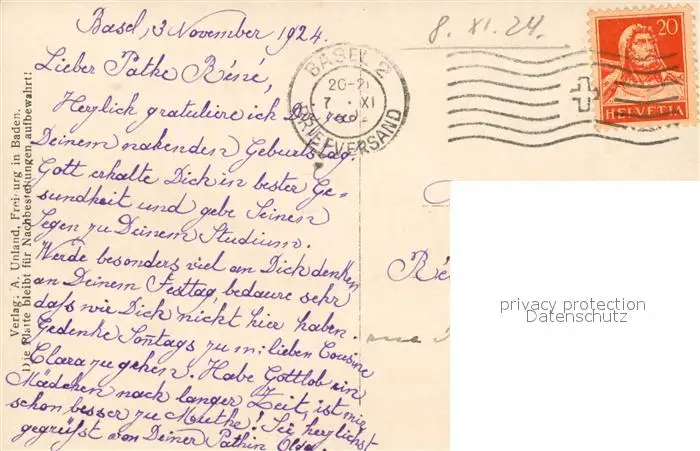 Basel, 3 November 1924.
8. XI. 24.
20
HELVETIA
BASEL 2
20-21
7. XI
BRIEFVERSAND
Lieber Pathe Réné,
Herzlich gratuliere ich Dir zu
Deinem nahenden Geburtstag
Gott erhalte Dich in bester Ge-
sundheit und gebe Seinen
Segen zu Deinem Studium.
Werde besonders viel an Dich denken
an Deinem Festtag, bedaure sehr
daß wir Dich nicht hier haben.
Gedenke Sontags zu m: lieben Cousine
Clara zu gehen. Habe Gottlob ein
Mädchen nach langer Zeit, ist mir
schon besser zu Muthe! Sei herzlichst
gegrüßt von Deiner Pathin Olga.
Verlag: A. Unland, Freiburg in Baden.
Die Platte bleibt für Nachbestellungen aufbewahrt!
Ré
privacy protection
Datenschutz